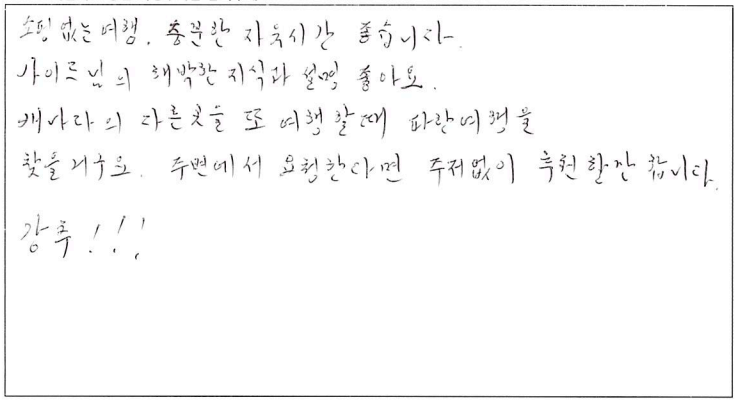 쇼핑 없는 여행, 충분한 자유시간 좋습니다.
가이드님의 해박한 지식과 설명 좋아요.
다른곳을 또 여행할때 파란여행을
찾을거구요. 주변에서 요청한다면 주저없이 추천 할만 합니다.
강추!!!